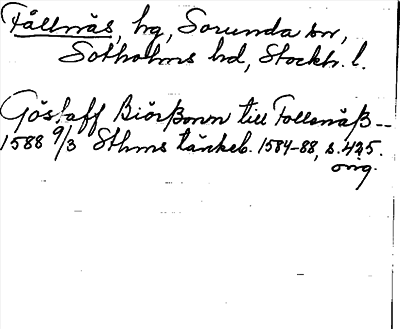 Fållnäs, hg, Sorunda sn,
Sotholms hd, Stockh. l.
Göstaff Biörßonn till Follsnäß --
1588 9/3 Sthms tänkeb. 1584-88, s. 425.
orig.